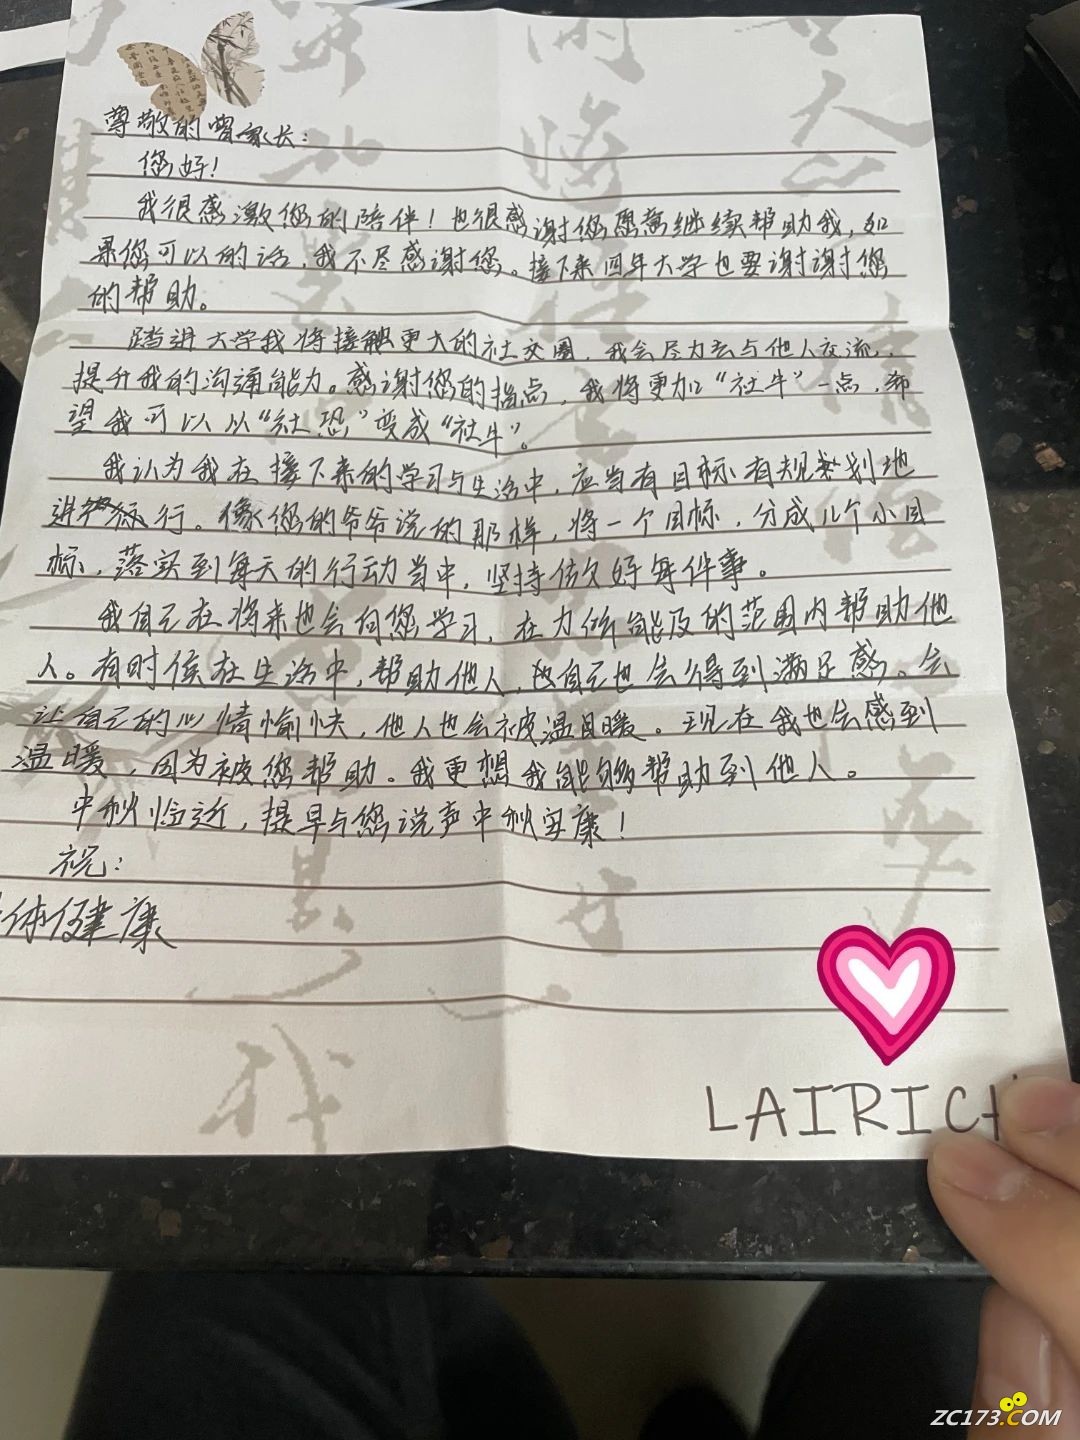 尊敬的曾家长:
您好!
我很感激您的陪伴!也很感谢您愿意继续帮助我,如
果您可以的话,我不尽感谢您。接下来四年大学也要谢谢您
的帮助。
踏进大学我将接触更大的社交圈,我会尽力去与他人交流,
提升我的沟通能力。感谢您的指点,我将更加“社牛”一点,希
望我可以从“社恐”变成“社牛”。
我认为我在接下来的学习与生活中,应当有目标有规划地
进行。像您的爷爷说的那样,将一个目标,分成几个小目
标,落实到每天的行动当中,坚持做好每件事。
我自己在将来也会向您学习,在力所能及的范围内帮助他
人。有时候在生活中,帮助他人,自己也会得到满足感。会
让自己的心情愉快,他人也会被温暖。现在我也会感到
温暖,因为被您帮助。我更想我能够帮助到他人。
中秋临近,提早与您说声中秋安康!
祝:
体健康
LAIRICH
ZC173.COM